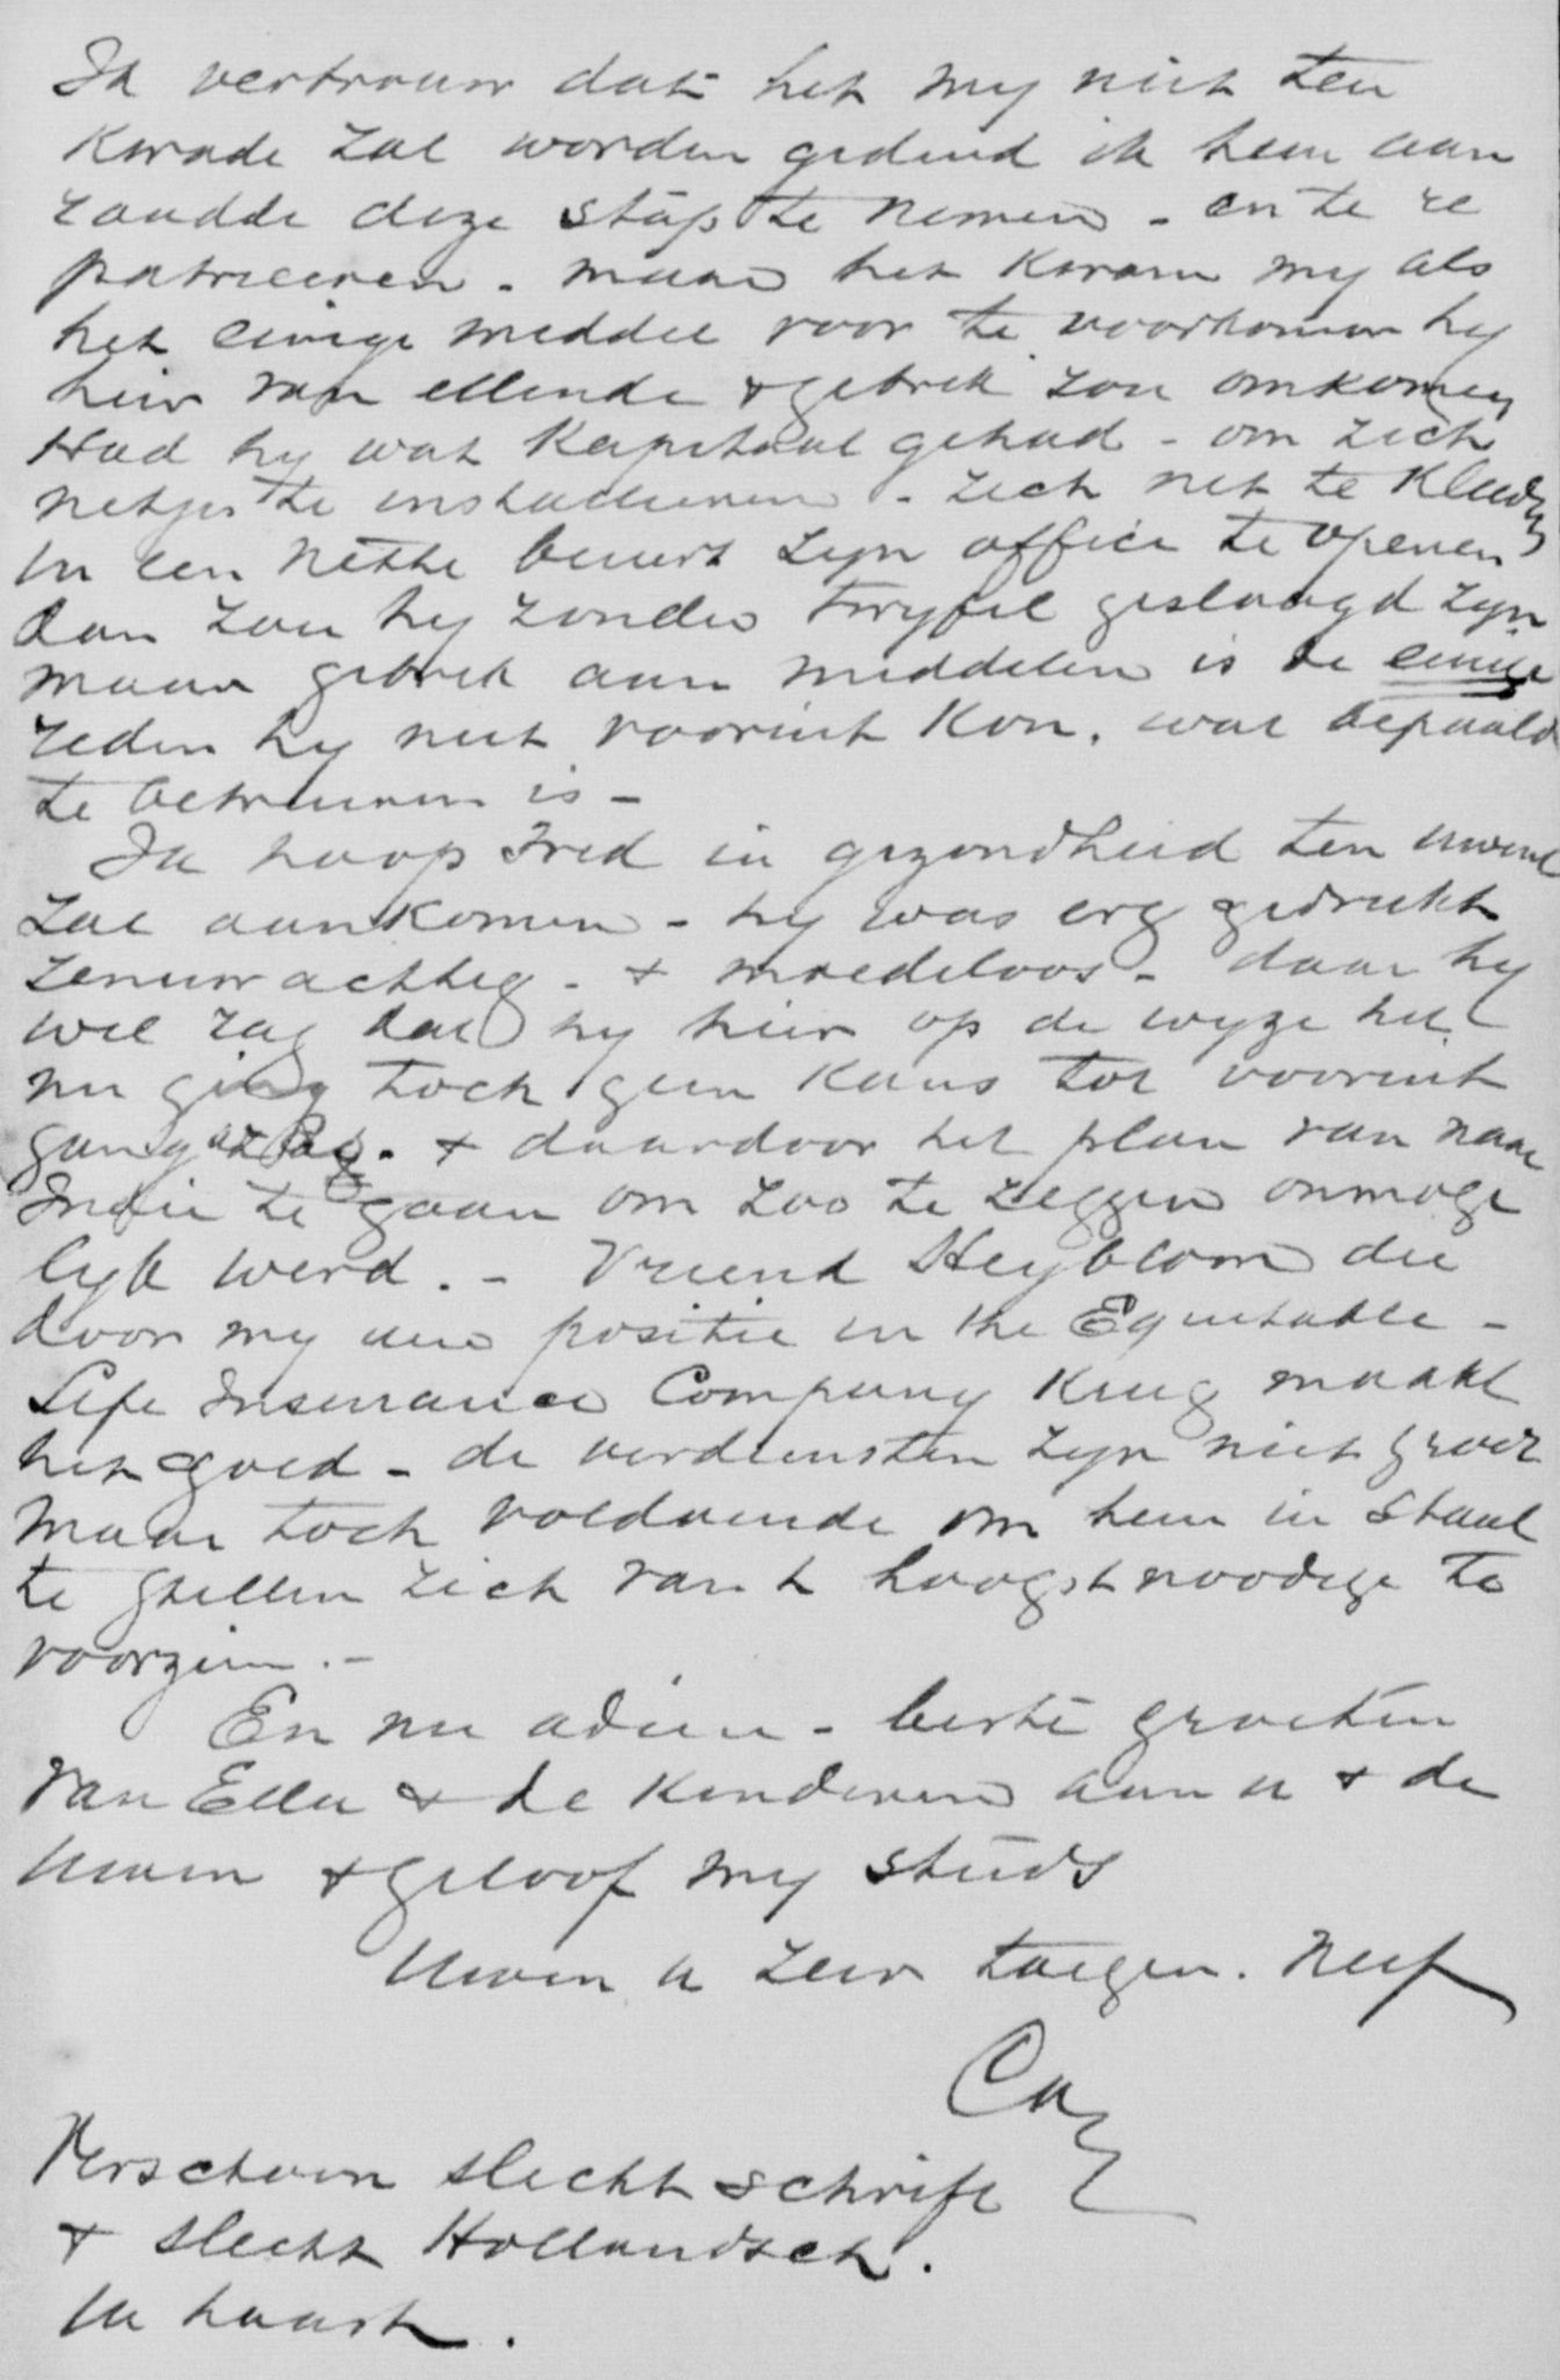 Ik vertrouw dat het my niet ten
kwade zal worden geduid ik hem aan
raadde deze stap te nemen - en te re
patrieeren - maar het kwam my als
het eenige middel voor te voorkomen hy
hier van ellende + gebrek zou omkomen
Had hy wat Kapitaal gehad - om zich
netjes te installeeren - zich net te kleeden
in een nette buurt zyn office te openen
dan zou hy zonder twyfel geslaagd zyn
maar gebrek aan middelen is de eenige
reden hy niet vooruit kon, wat bepaald
te betreuren is -
Ik hoop Fred in gezondheid ten uwent
zal aankomen - hy was erg gedrukt
zenuwachtig - + moedeloos - daar hy
wel zag dat hy hier op de wyze het
nu ging toch geen kans tot vooruit
gang zag. + daardoor het plan van naar
Indie te gaan om zoo te zeggen onmoge
lyk werd. - Vriend Heybloom die
door my een positie in the Equitable -
Life Insurance Company kreeg maakt
het goed - de verdiensten zyn niet groot
maar toch voldoende om hem in staat
te stellen zich van t hoogst noodige te
voorzien. -
En nu adieu - beste groeten
van Ella + de kinderen aan u + de
uwen + geloof my steeds
Uwen u zeer toegen. Neef
Verschoon slecht schrift
+ slecht Hollandsch.
In haast.